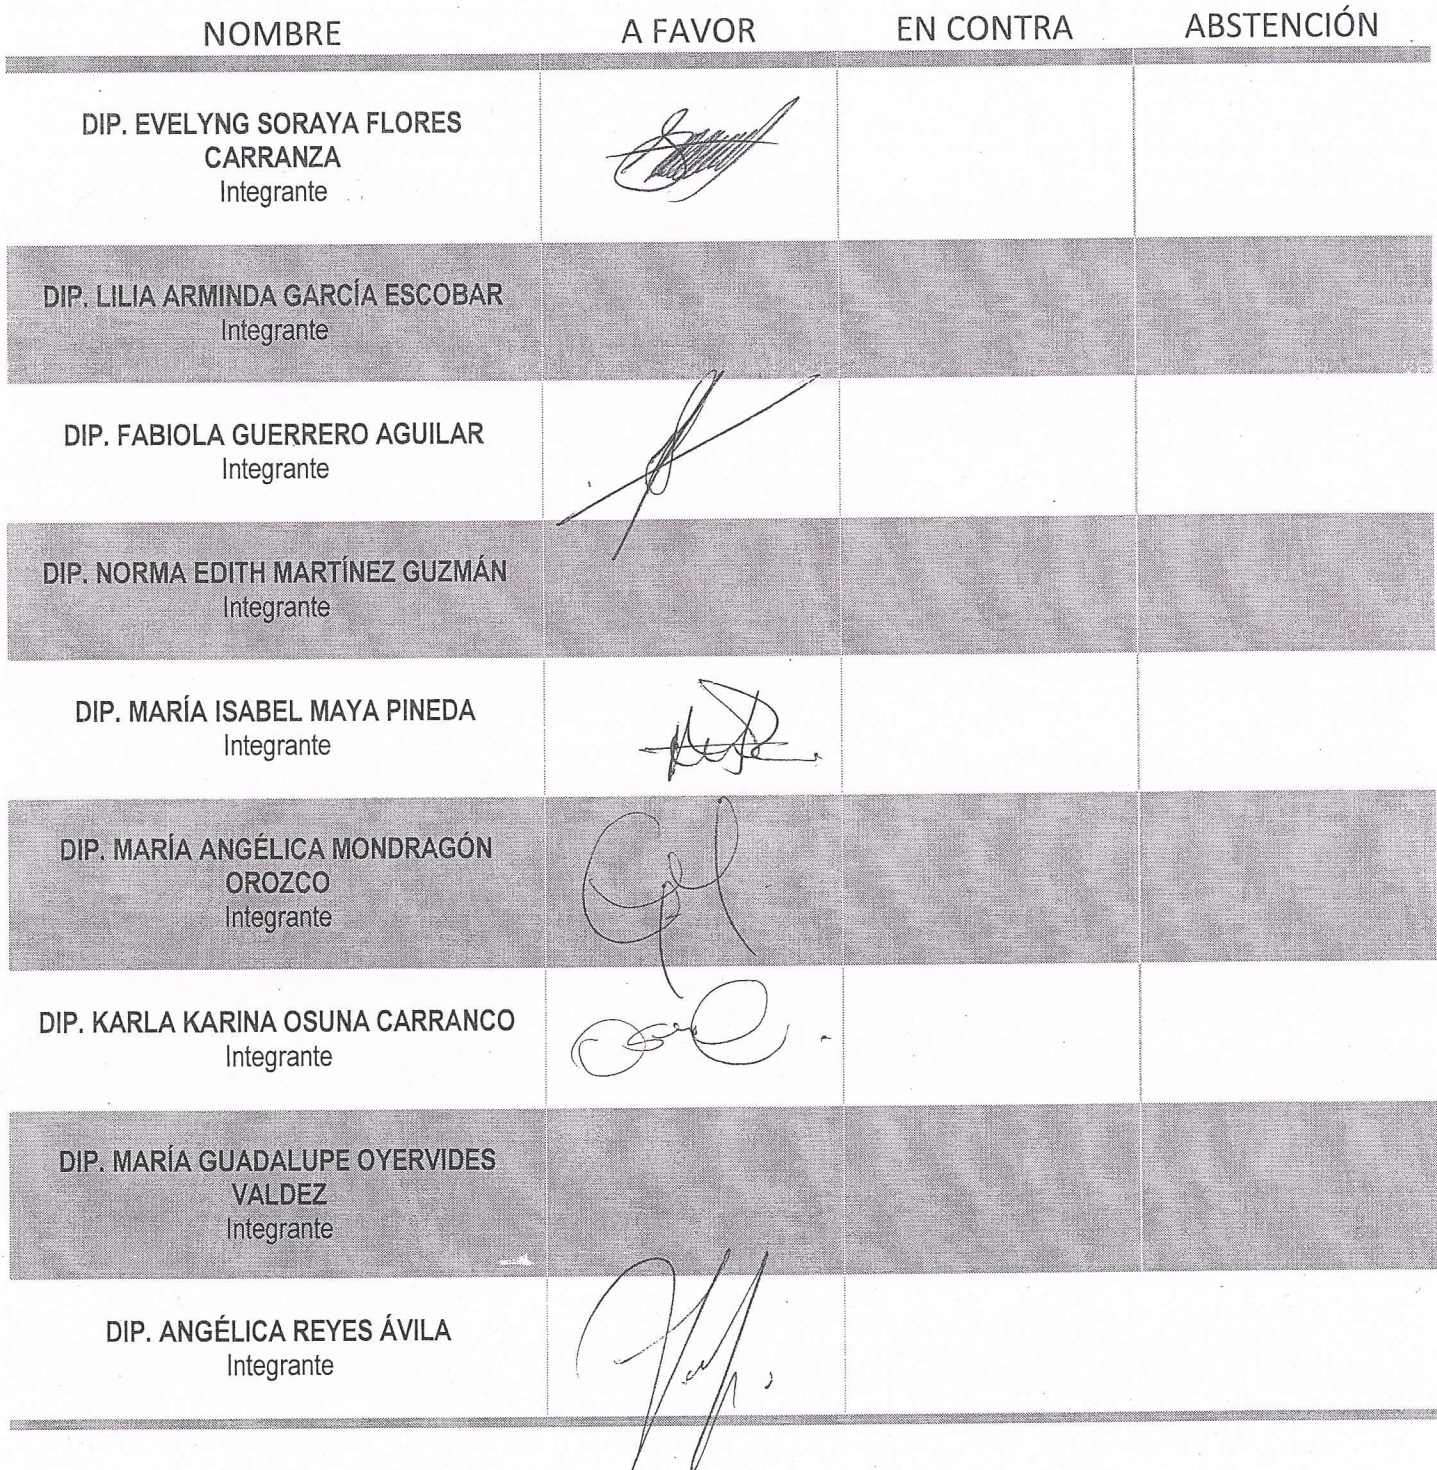 NOMBRE A FAVOR EN CONTRA ABSTENCIÓN
DIP. EVELYNG SORAYA FLORES
CARRANZA
Integrante
DIP. LILIA ARMINDA GARCÍA ESCOBAR
Integrante
DIP. FABIOLA GUERRERO AGUILAR
Integrante
DIP. NORMA EDITH MARTÍNEZ GUZMÁN
Integrante
DIP. MARÍA ISABEL MAYA PINEDA
Integrante
DIP. MARÍA ANGÉLICA MONDRAGÓN
OROZCO
Integrante
DIP. KARLA KARINA OSUNA CARRANCO
Integrante
DIP. MARÍA GUADALUPE OYERVIDES
VALDEZ
Integrante
DIP. ANGÉLICA REYES ÁVILA
Integrante